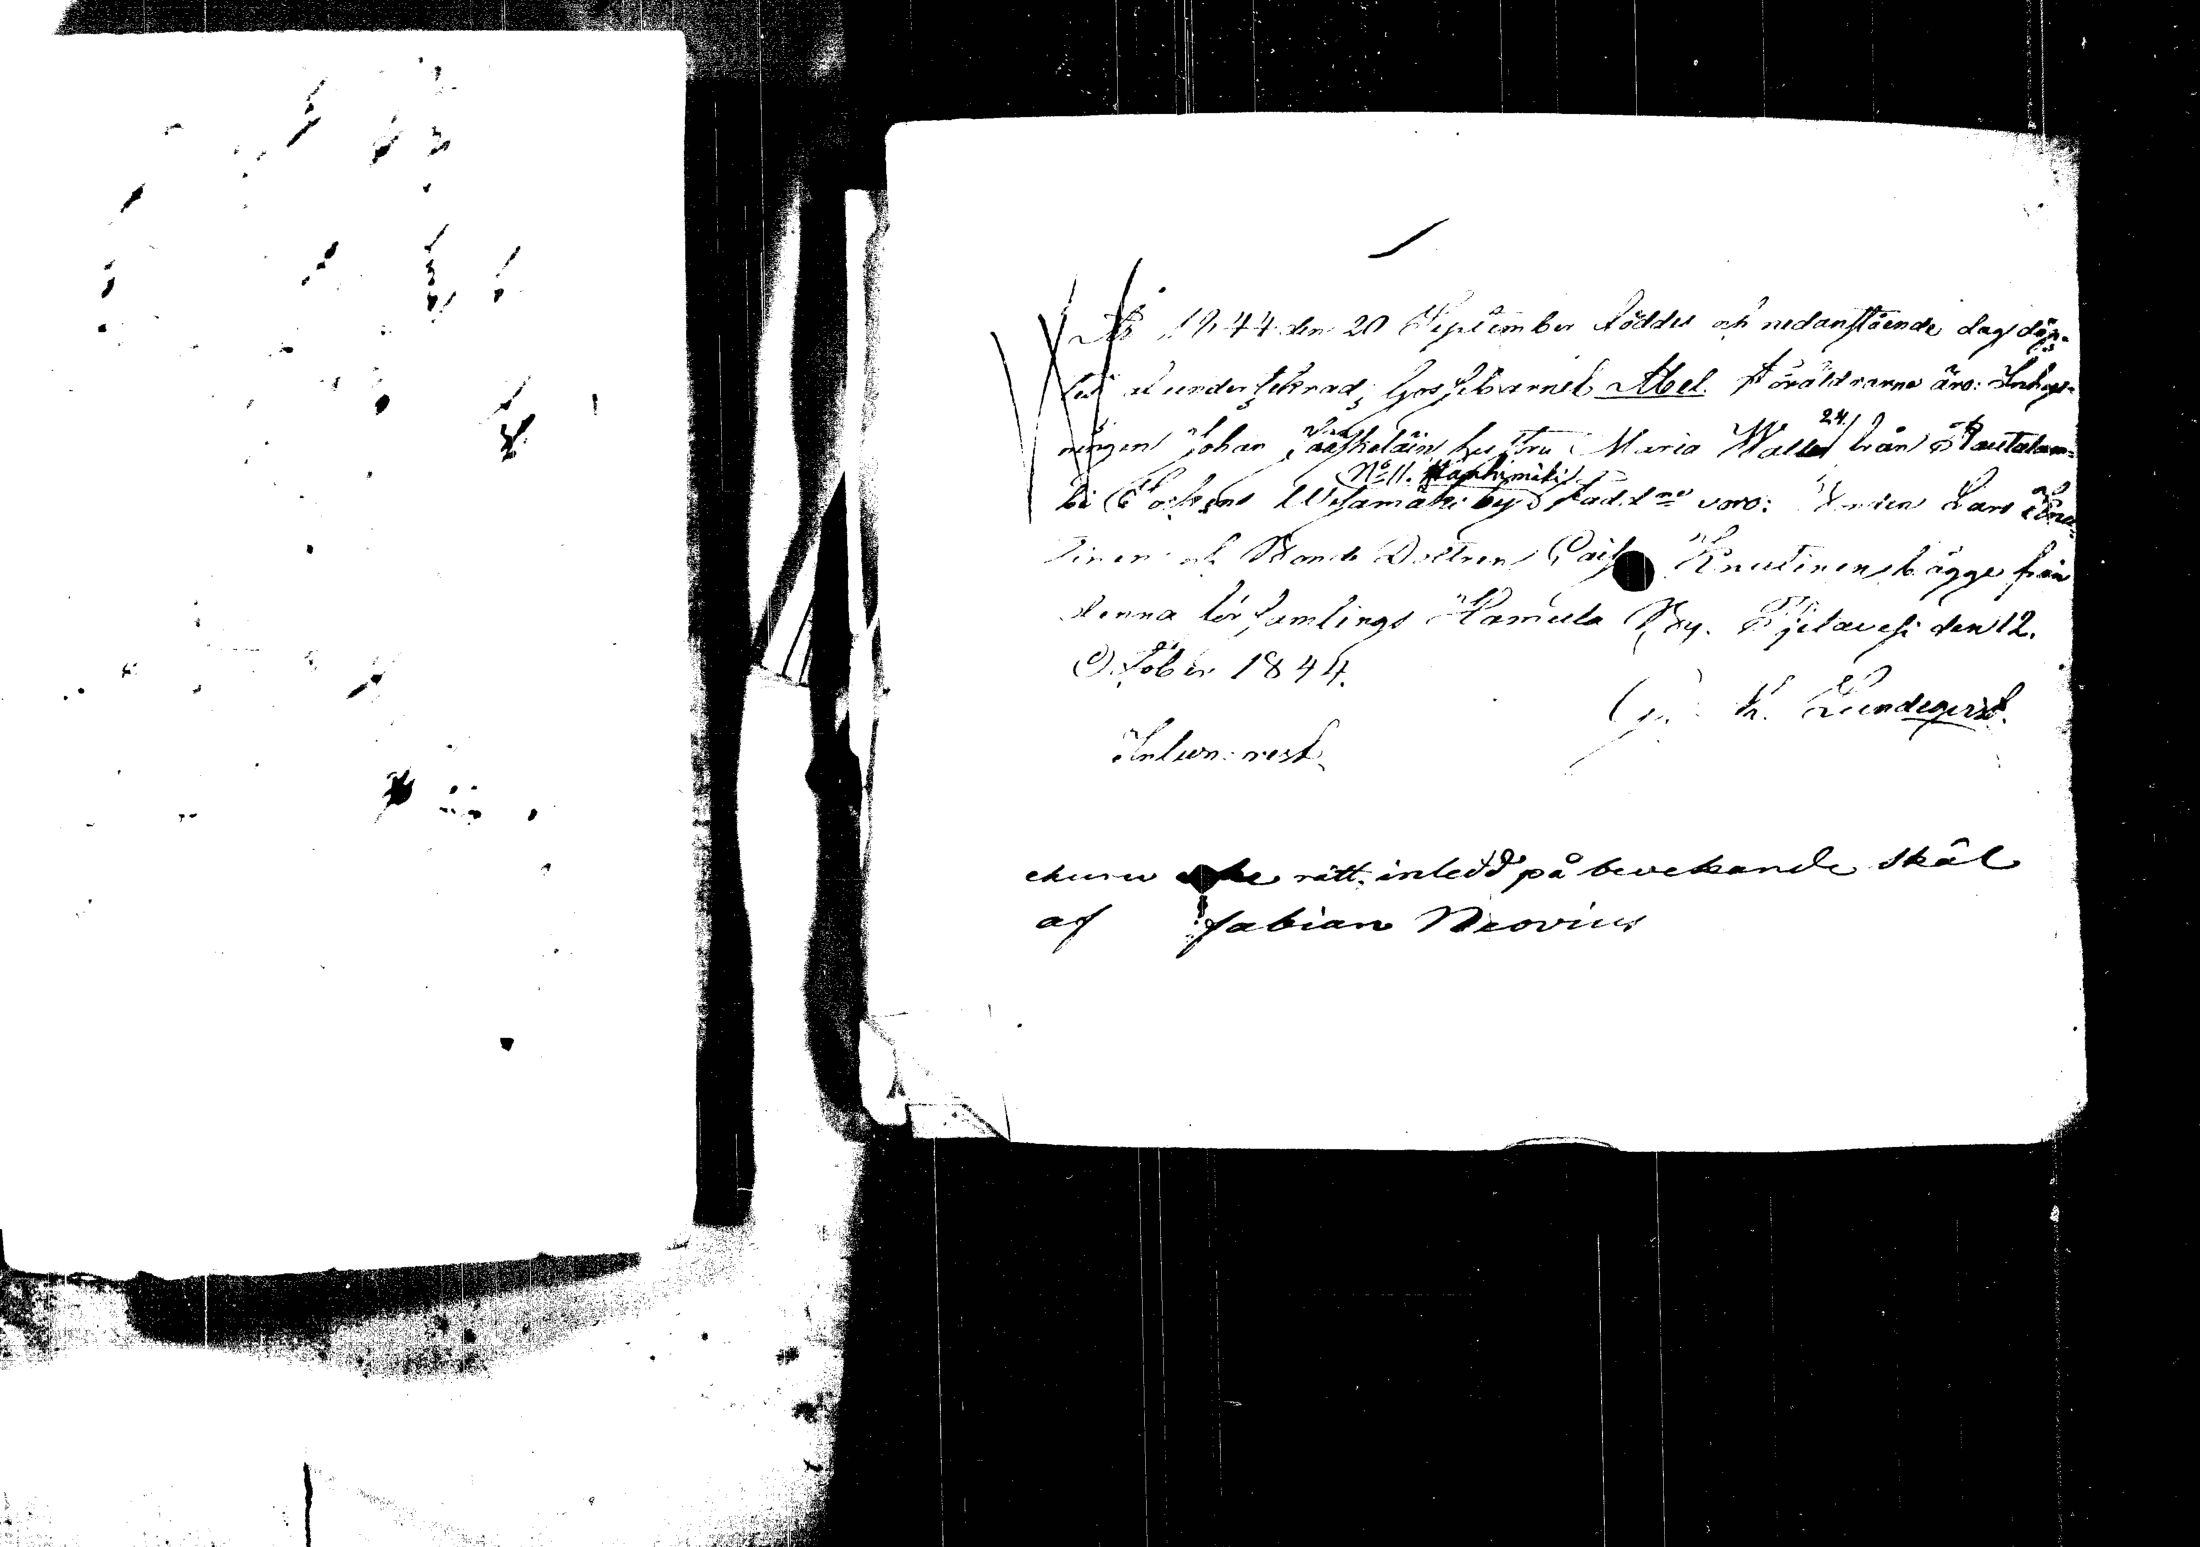 År 1844 den 20 September föddes och nedanstående dag döp-
tes af undertecknad, Gossebarnet Abel. Föräldrarne äro: Inhys-
ningen Johan Jääskeläin hustru Maria 24. från Rautalam-
bi Sockens Wesamäki by No 11. Faddrne voro: Lars Knu-
tinen och Bonde Dottren Caisa Knutinen bägge från
denna församlings Hamula By. Pjelavesi den 12.
October 1844.
K. Lundeqvist.
rätt inledd på bevekande skäl
af fabian Neovius